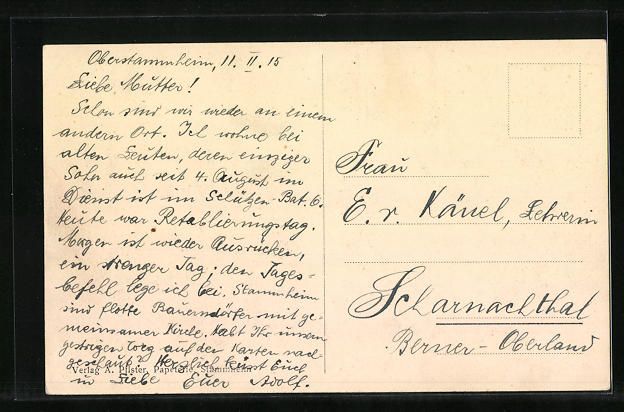 Oberstammheim, 11. II. 15
Liebe Mutter!
Schon sind wir wieder an einem
andern Ort. Ich wohne bei
alten Leuten, deren einziger
Sohn auch seit 4. August im
Dienst ist im Schützen-Bat. 6.
Heute war Retablierungstag.
Morgen ist wieder Ausrücken,
ein strenger Tag; den Tages-
befehl lege ich bei. Stammheim
sind flotte Bauerndörfer mit ge-
meinsamer Kirche. Habt Ihr unsern
gestrigen Weg auf der Karten nach-
geschaut? Herzlich küsst Euch
in Liebe Euer Adolf.
Verlag A. Pfister, Papeterie, Stammheim
Frau
E. v. Känel, Lehrerin
Scharnachthal
Berner-Oberland